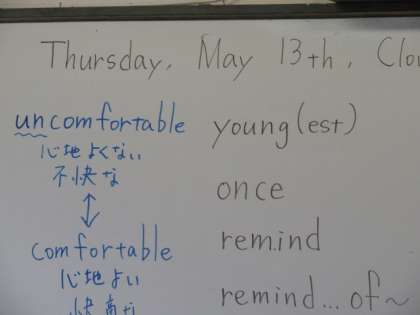 Thursday, May 13th, Clou
uncomfortable
心地よくない
不快な
↕
comfortable
心地よい
快適な
young(est)
once
remind
remind...of~